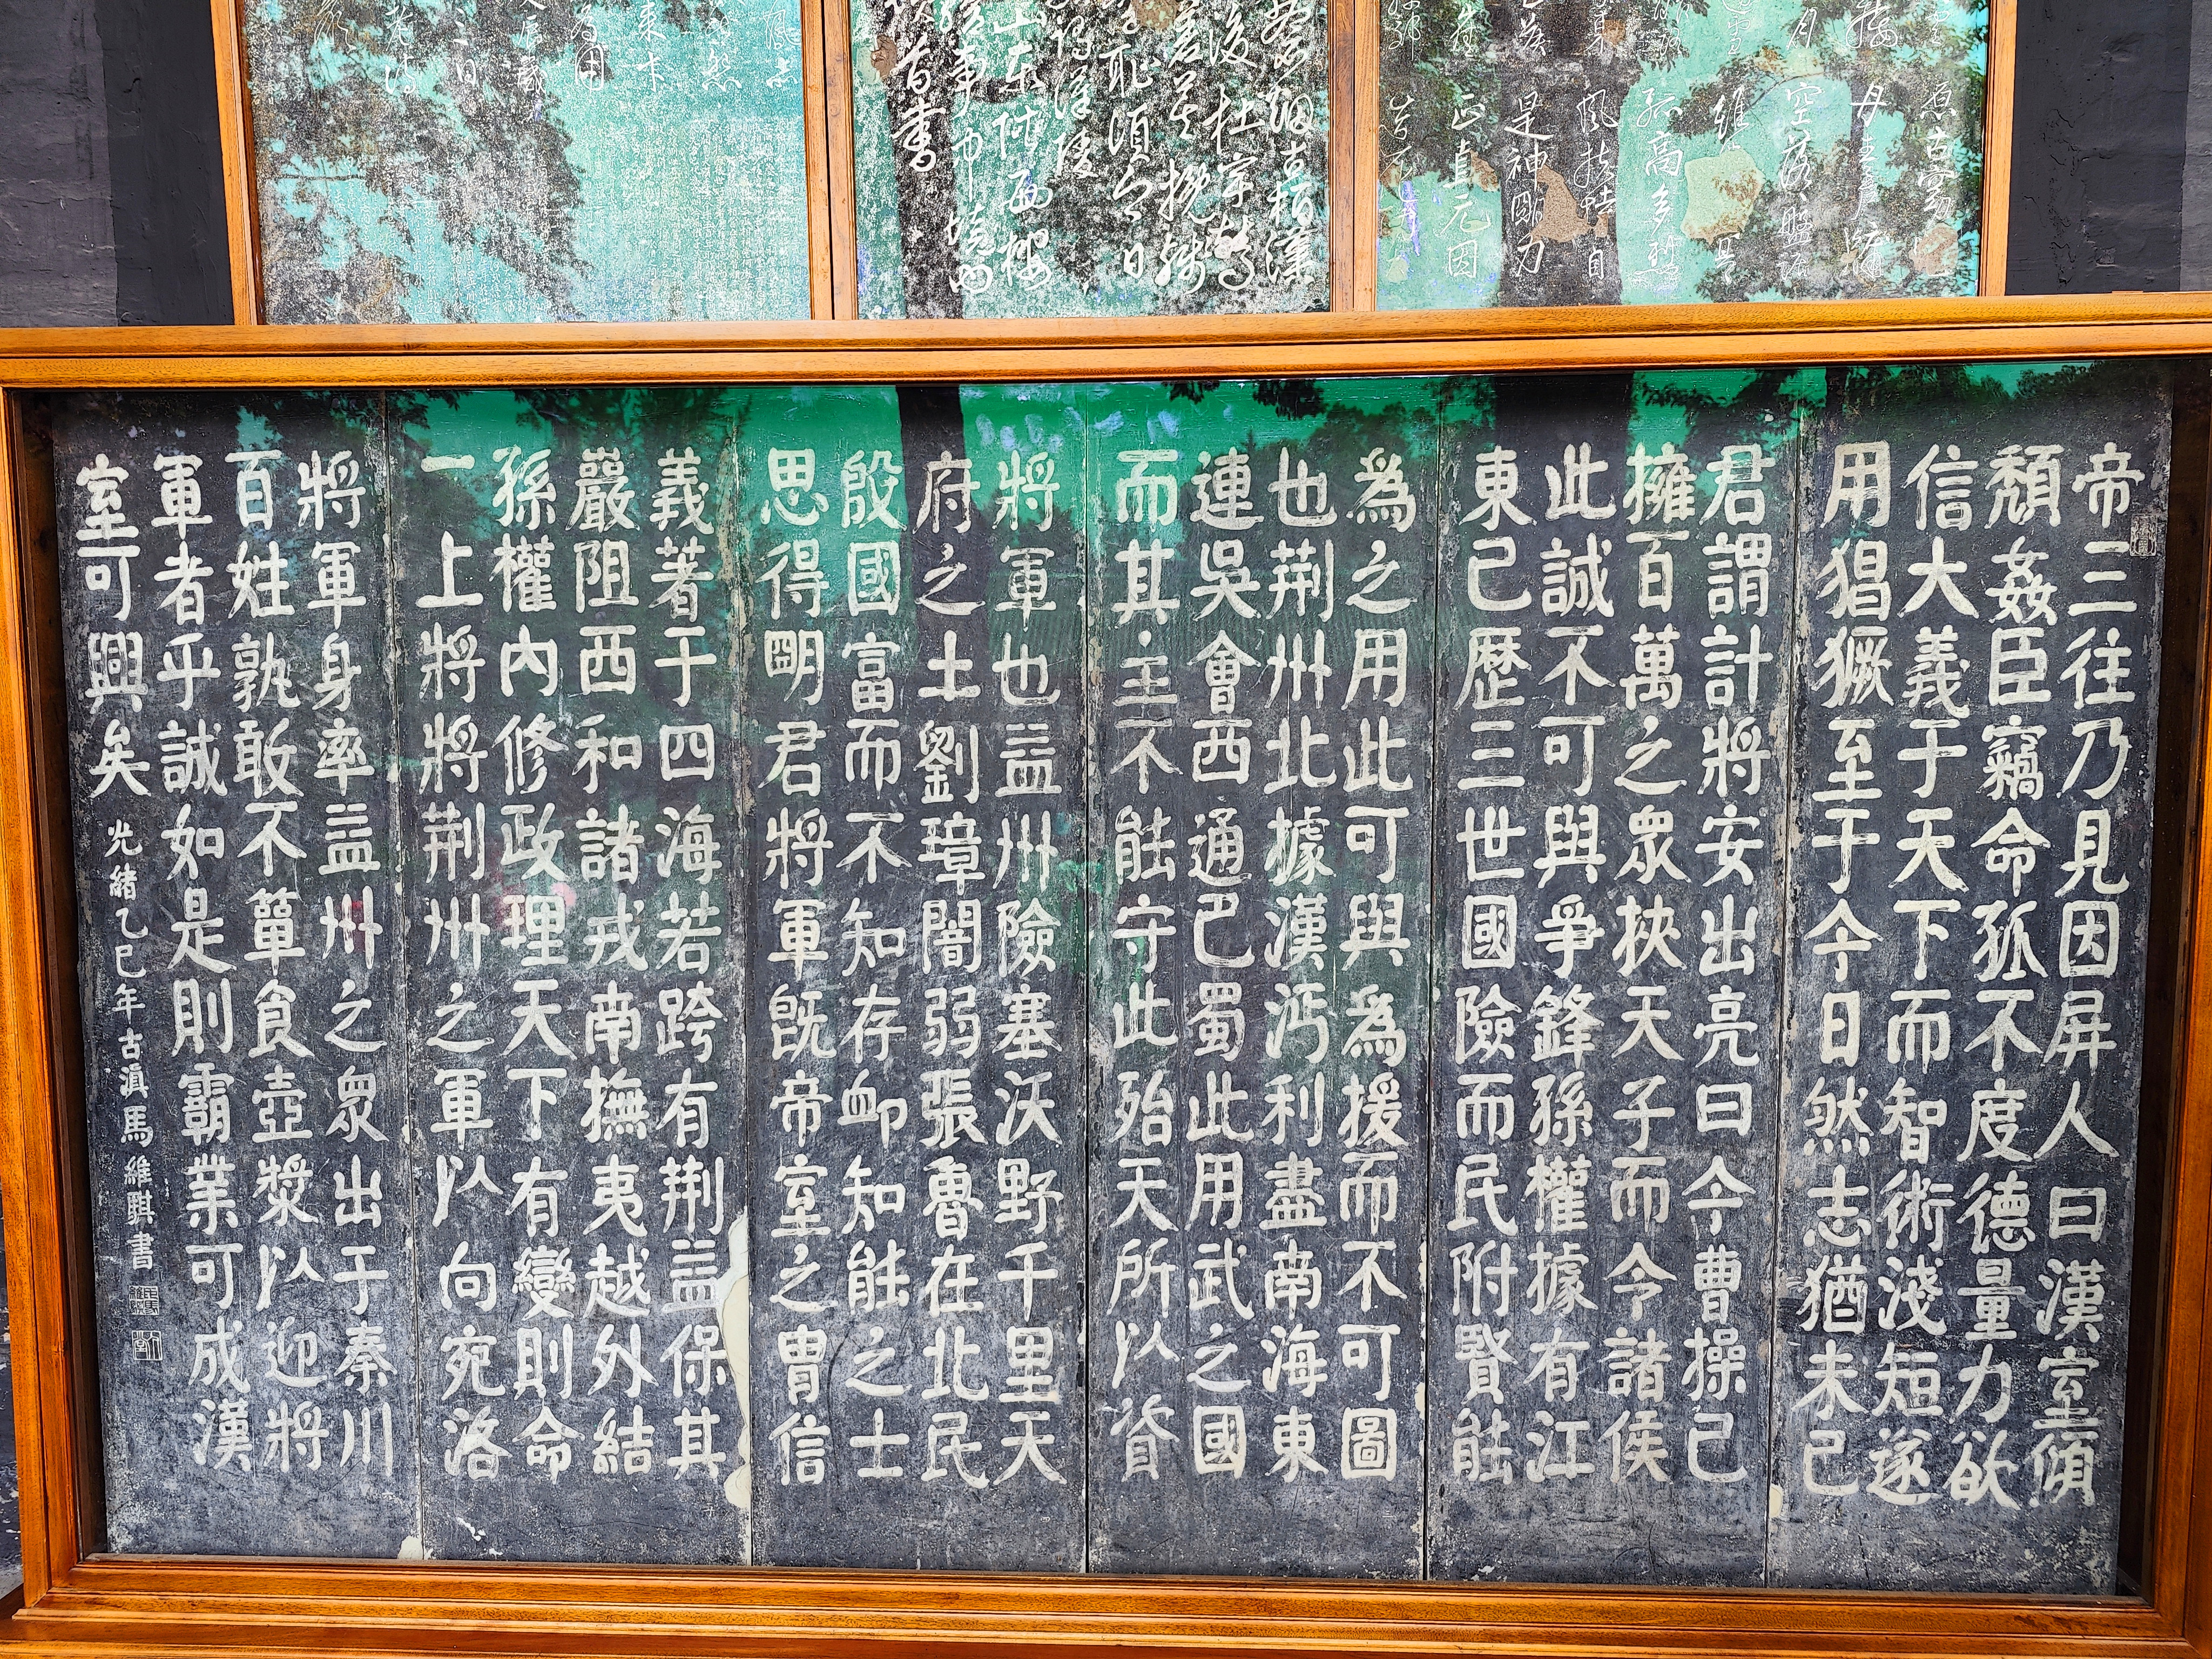 孤高多烈
風扶持自
是神明力
正直元因
首書
帝三往乃見因屏人曰漢室傾
頹姦臣竊命孤不度德量力欲
信大義于天下而智術淺短遂
用猖獗至于今日然志猶未已
君謂計將安出亮曰今曹操已
擁百萬之眾挾天子而令諸侯
此誠不可與爭鋒孫權據有江
東已歷三世國險而民附賢能
為之用此可與為援而不可圖
也荊州北據漢沔利盡南海東
連吳會西通巴蜀此用武之國
而其主不能守此殆天所以資
將軍也益州險塞沃野千里天
府之土劉璋闇弱張魯在北民
殷國富而不知存卹知能之士
思得明君將軍既帝室之胄信
義著于四海若跨有荊益保其
巖阻西和諸戎南撫夷越外結
孫權內修政理天下有變則命
一上將將荊州之軍以向宛洛
將軍身率益州之眾出于秦川
百姓孰敢不簞食壺漿以迎將
軍者乎誠如是則霸業可成漢
室可興矣
光緒乙巳年古滇馬維騏書